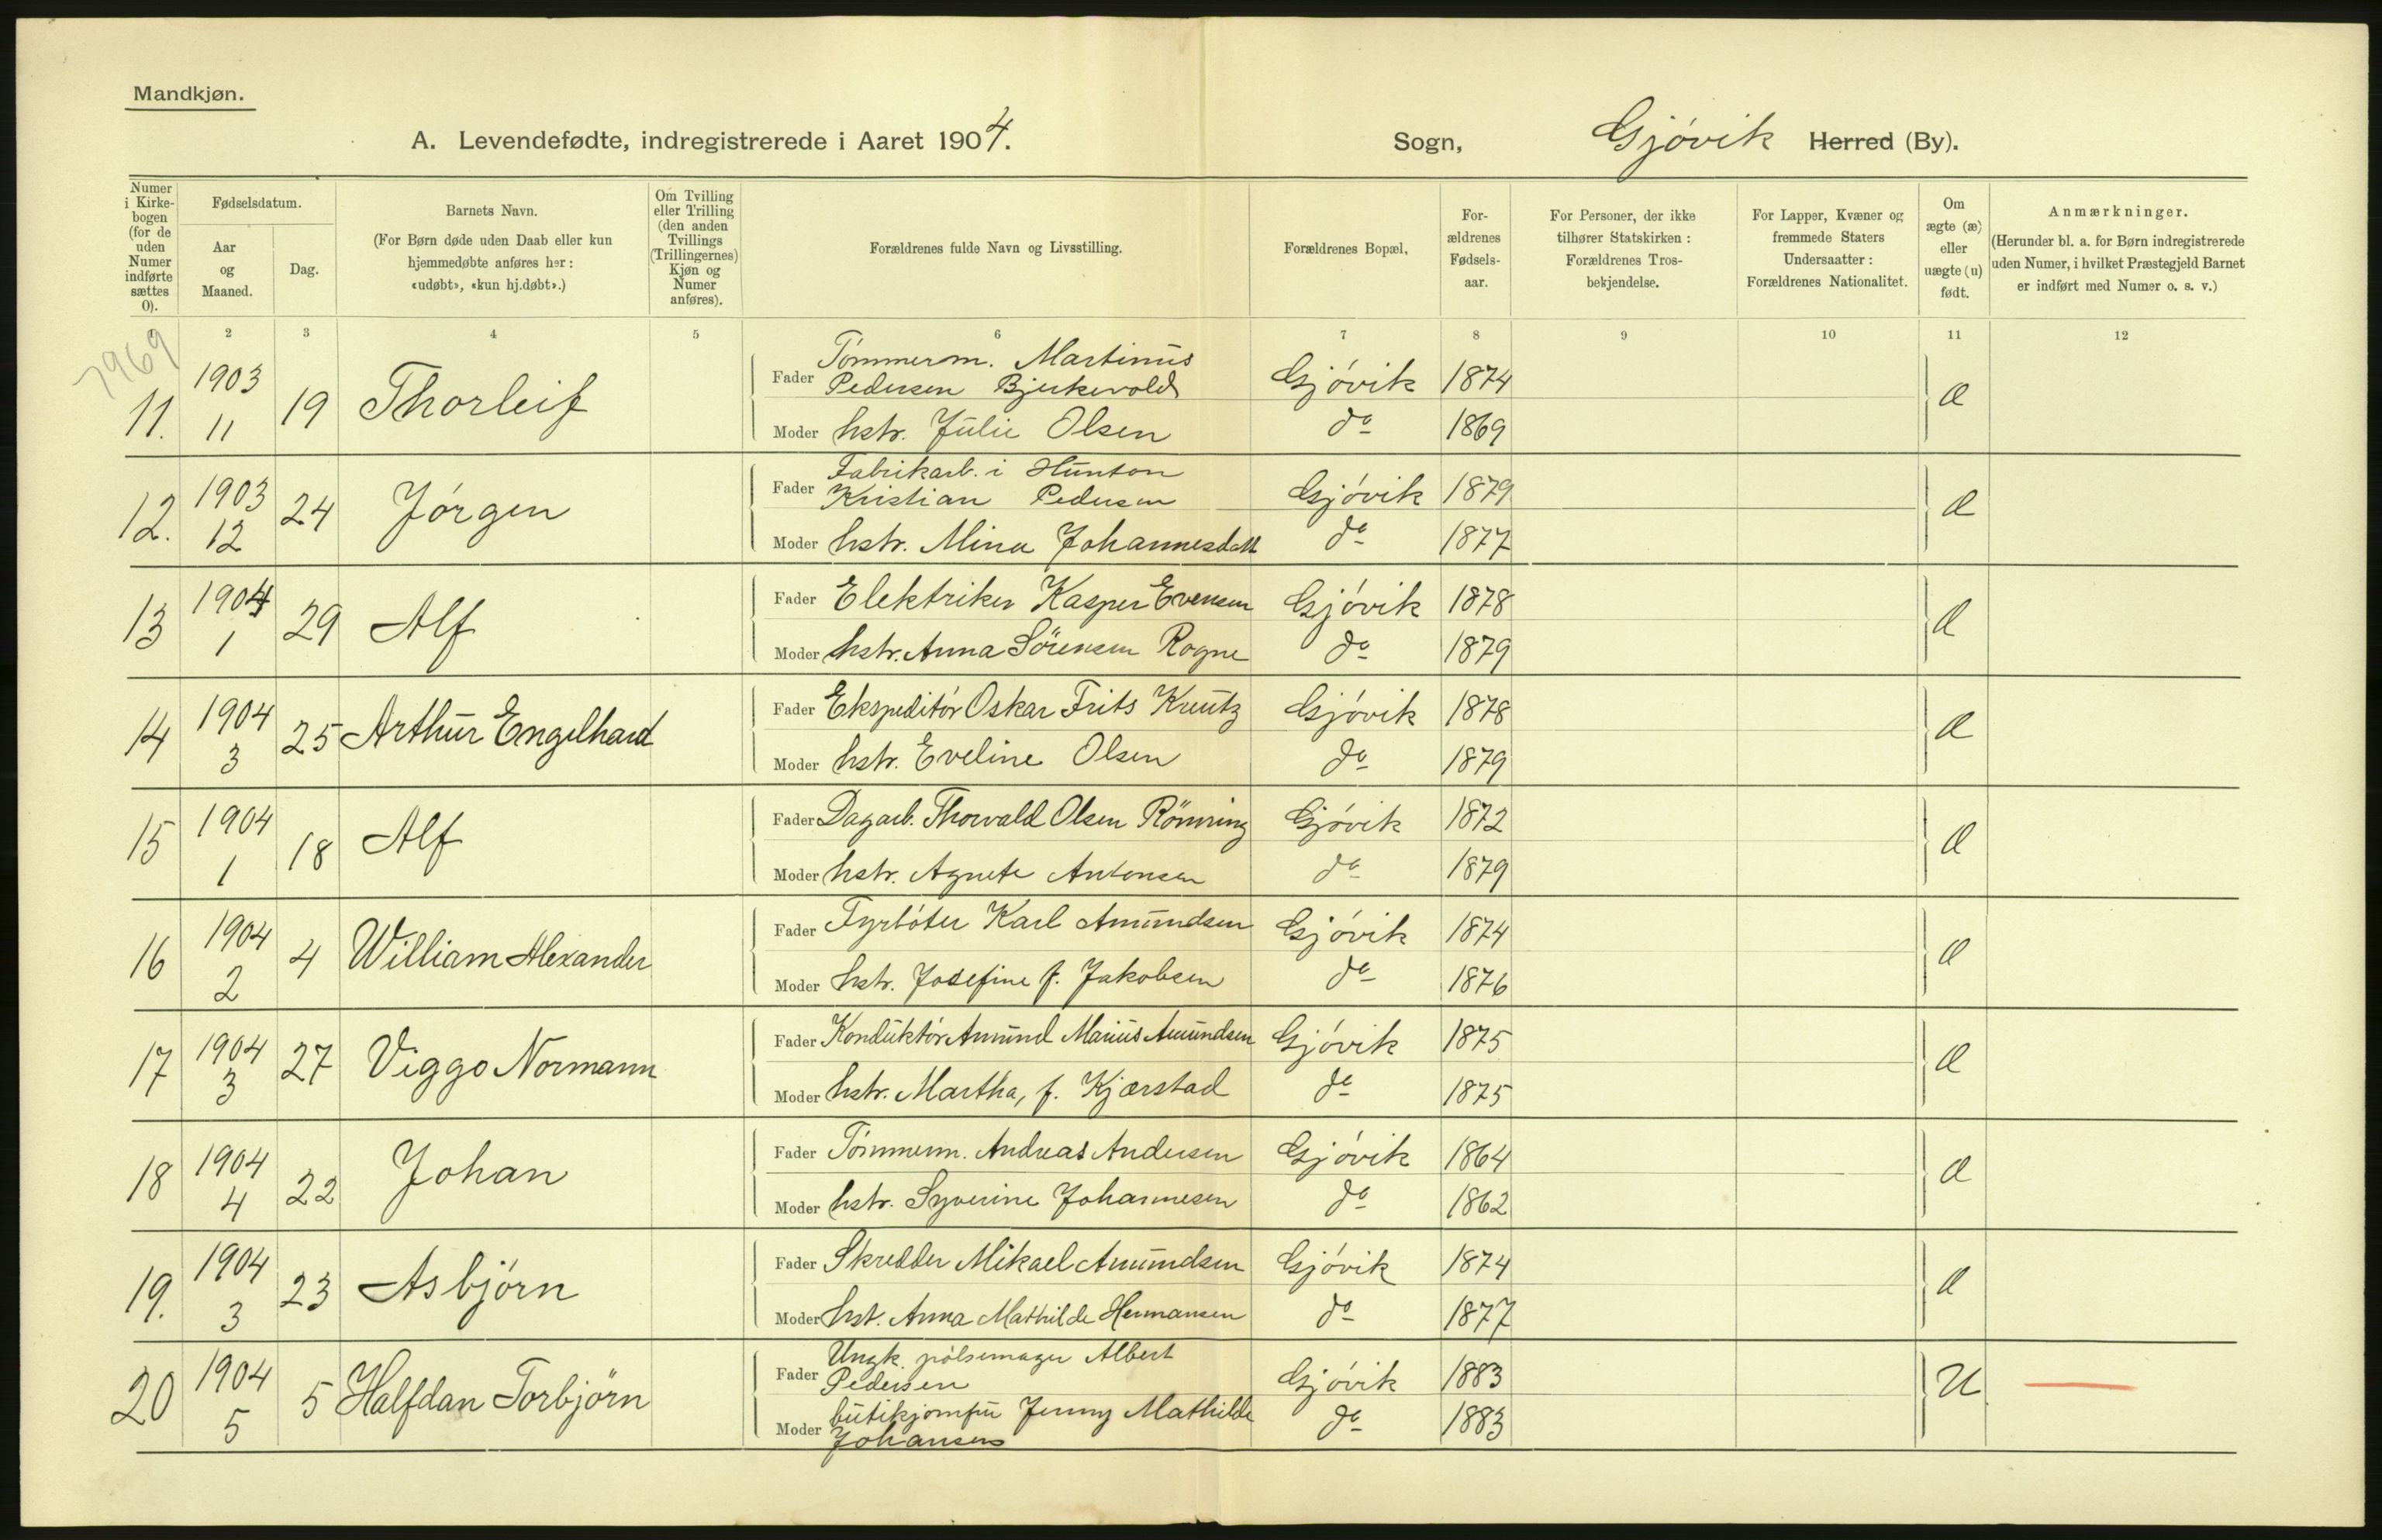 Mandkjøn.
A. Levendefødte, indregistrerede i Aaret 1904. Sogn, Gjövik Herred (By).
Numer i Kirkebogen (for de uden Numer indførte sættes 0).
Fødselsdatum.
Aar og Maaned.
Dag.
Barnets Navn.
(For Børn døde uden Daab eller kun hjemmedøbte anføres her: «udøbt», «kun hj.døbt».)
Om Tvilling eller Trilling (den anden Tvillings (Trillingernes) Kjøn og Numer anføres).
Forældrenes fulde Navn og Livsstilling.
Forældrenes Bopæl,
Forældrenes Fødselsaar.
For Personer, der ikke tilhører Statskirken: Forældrenes Trosbekjendelse.
For Lapper, Kvæner og fremmede Staters Undersaatter: Forældrenes Nationalitet.
Om ægte (æ) eller uægte (u) født.
Anmærkninger.
(Herunder bl. a. for Børn indregistrerede uden Numer, i hvilket Præstegjeld Barnet er indført med Numer o. s. v.)
1 2 3 4 5 6 7 8 9 10 11 12
7969
11. 1903 11 19 Thorleif Fader Tömmerm. Martinus Pedersen Bjerkevold Gjövik 1874 æ
Moder hstr. Julie Olsen do 1869
12. 1903 12 24 Jörgen Fader Fabrikarb. i Hunton Kristian Pedersen Gjövik 1879 æ
Moder hstr. Mina Johannesdatt do 1877
13 1904 1 29 Alf Fader Elektriker Kasper Evensen Gjövik 1878 æ
Moder hstr. Anna Sörensen Rogne do 1879
14 1904 3 25 Arthur Engelhard Fader Ekspeditör Oskar Frits Kreutz Gjövik 1878 æ
Moder hstr. Eveline Olsen do 1879
15 1904 1 18 Alf Fader Dagarb. Thorvald Olsen Gjövik 1872 æ
Moder hstr. Agnete Antonsen do 1879
16 1904 2 4 William Alexander Fader Fyrböter Karl Amundsen Gjövik 1874 æ
Moder hstr. Josefine f. Jakobsen do 1876
17 1904 3 27 Viggo Normann Fader Konduktör Amund Marius Amundsen Gjövik 1875 æ
Moder hstr. Martha, f. Kjærstad do 1875
18 1904 4 22 Johan Fader Tömmerm. Andreas Andersen Gjövik 1864 æ
Moder hstr. Syverine Johannesen do 1862
19. 1904 3 23 Asbjörn Fader Skredder Mikael Amundsen Gjövik 1874 æ
Moder hst. Anna Mathilde Hermansen do 1877
20 1904 5 5 Halfdan Torbjörn Fader Ungk. pölsemager Albert Pedersen Gjövik 1883 U
Moder butikjomfru Jenny Mathilde Johansen do 1883